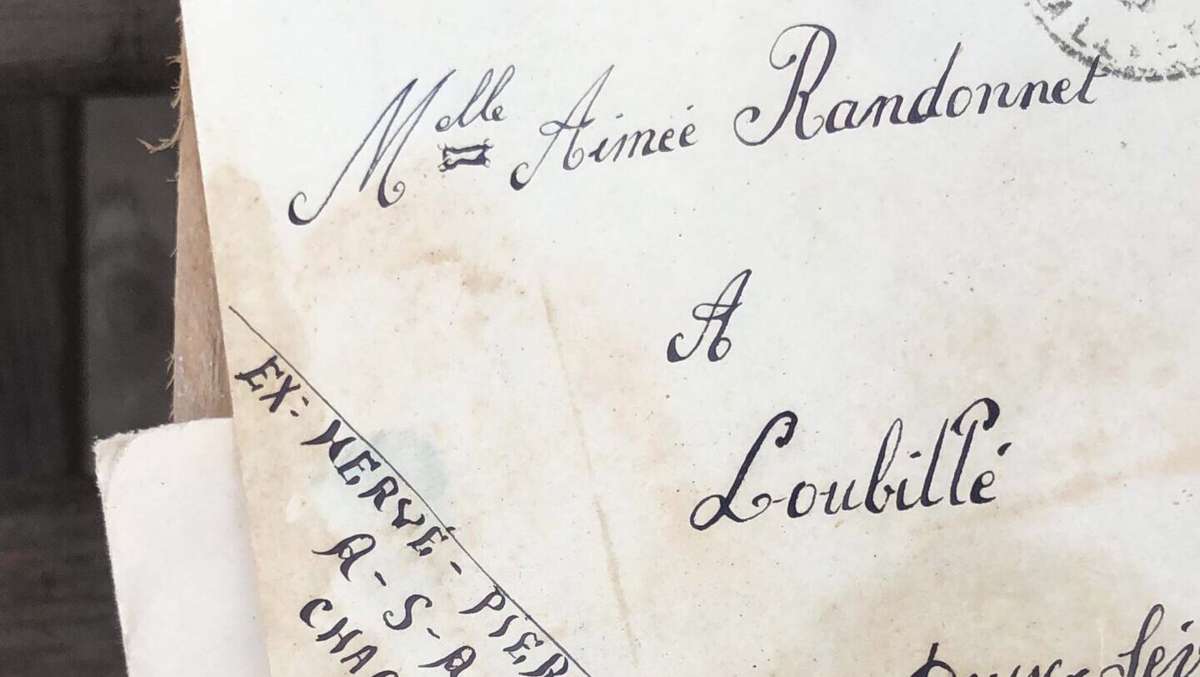 Melle Aimée Randonnet
A
Loubillé
EX-HERVÉ-PIER
A-S-A
CHAC